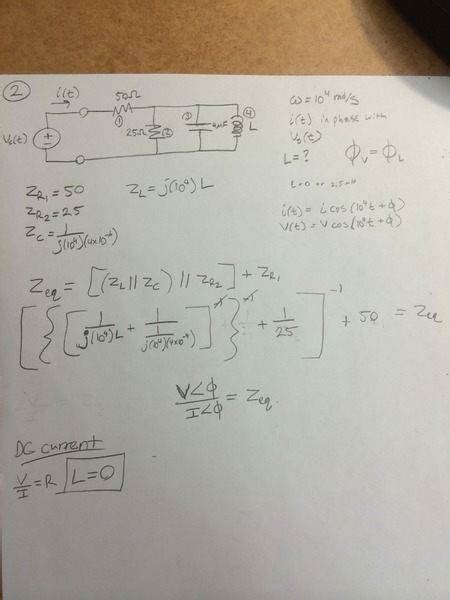 ②
i(t)
50Ω
①
25Ω ②
③ 4µF
④ L
Vs(t)
ω = 10⁴ rad/s
i(t) in phase with
Vs(t)
L = ?
ϕV = ϕL
L=0 or 2.5
i(t) = i cos(10⁴t + ϕ)
V(t) = V cos(10⁴t + ϕ)
ZR₁ = 50
ZL = j(10⁴)L
ZR₂ = 25
ZC = 1/j(10⁴)(4x10⁻⁶)
Zeq = [(ZL || ZC) || ZR₂] + ZR₁
[{[1/j(10⁴)L + 1/(1/j(10⁴)(4x10⁻⁶))]⁻¹}⁻¹ + 1/25]⁻¹ + 50 = Zeq
V∠ϕ/I∠ϕ = Zeq.
DC current
V/I = R
L=0